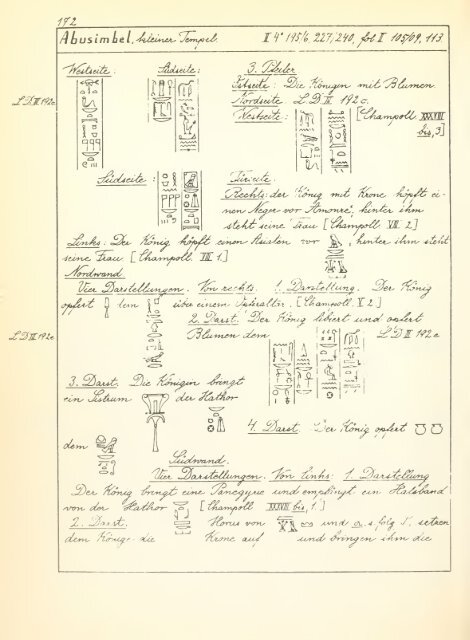 172
Abusimbel, kleiner Tempel. II 4° 195/6, 227/240, fol. II 105/69, 113.
Westseite: Südseite: 3. Pfeiler
Ostseite: Die Königin mit Blumen.
L D III 192c. Nordseite L. D. III. 192 c.
Westseite: [Champoll. XXXVIII bis, 3]
Südseite: Türseite.
Rechts: der König mit Krone köpft ei-
nen Neger vor Amonre, hinter ihm
steht seine Frau [Champoll. VII. 2]
Links: Der König köpft einen Kuslen vor , hinter ihm steht
seine Frau [Champoll. VII 1]
Nordwand
Vier Darstellungen. Von rechts. 1. Darstellung. Der König
opfert dem über einem Opferaltar. [Champoll. V 2]
2. Darst. Der König libiert und opfert
L D III 192e Blumen dem L D III 192 e
3. Darst. Die Königin bringt
ein Sistrum der Hathor
4. Darst. Der König opfert
dem
Südwand.
Vier Darstellungen. Von links: 1. Darstellung
Der König bringt eine Panegyrie und empfängt ein Halsband
von der Hathor [Champoll. XXXVIII bis, 1.]
2. Darst. Horus von und setzen
dem Könige die Krone auf und bringen ihm die